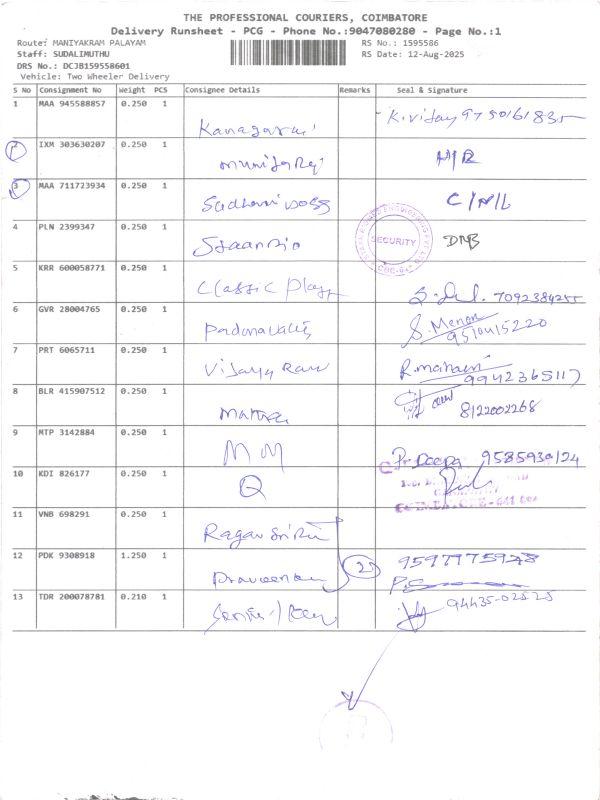 THE PROFESSIONAL COURIERS, COIMBATORE
Delivery Runsheet - PCG - Phone No.:9047080280 - Page No.:1
Route: MANIYAKRAM PALAYAM RS No.: 1595586
Staff: SUDALIMUTHU RS Date: 12-Aug-2025
DRS No.: DCJB159558601
Vehicle: Two Wheeler Delivery
S No Consignment No Weight PCS Consignee Details Remarks Seal & Signature
1 MAA 945588857 0.250 1 Kanagaraj K.vijay 9750161835
2 IXM 303630207 0.250 1 Muniraj
3 MAA 711723934 0.250 1
4 PLN 2399347 0.250 1 SECURITY
5 KRR 600058771 0.250 1 Classic 7092384255
6 GVR 28004765 0.250 1 S. Menon 9510415220
7 PRT 6065711 0.250 1 Vijaya 9942365117
8 BLR 415907512 0.250 1 8122002268
9 MTP 3142884 0.250 1 M M Deepa 9585930124
10 KDI 826177 0.250 1 Q
11 VNB 698291 0.250 1 Ragav
12 PDK 9308918 1.250 1 2
13 TDR 200078781 0.210 1